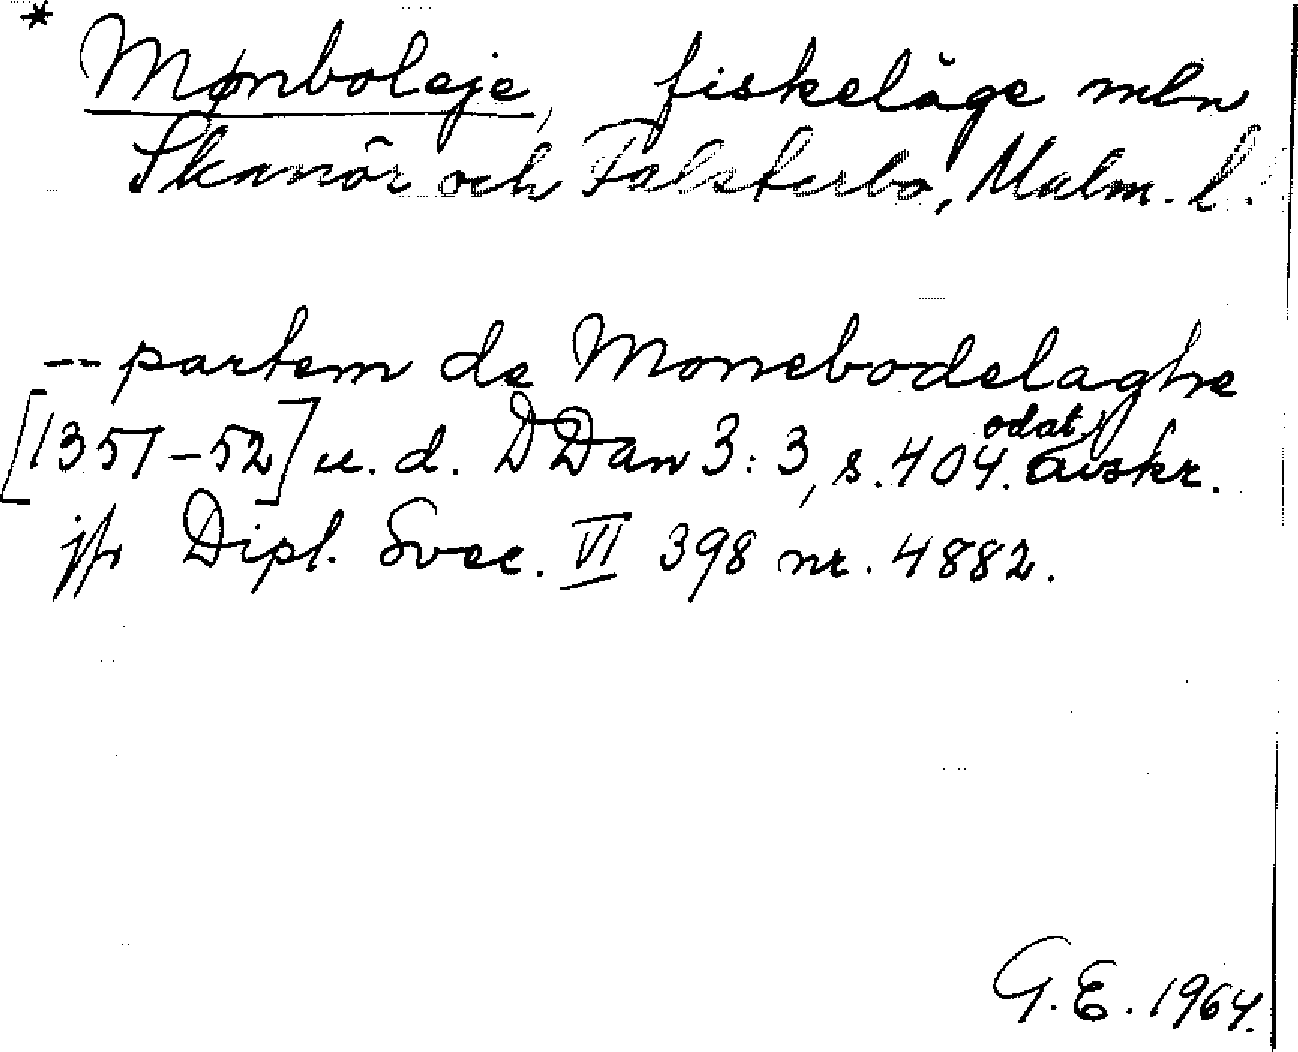 * Mønboleje, fiskeläge mln
Skanör och Falsterbo, Malm. l.
-- partem de Monebodelaghe
[1351-52] u. d. DDan 3: 3, s. 404. odat. avskr.
jfr Dipl. Svec. VI 398 nr. 4882.
G. E. 1964.